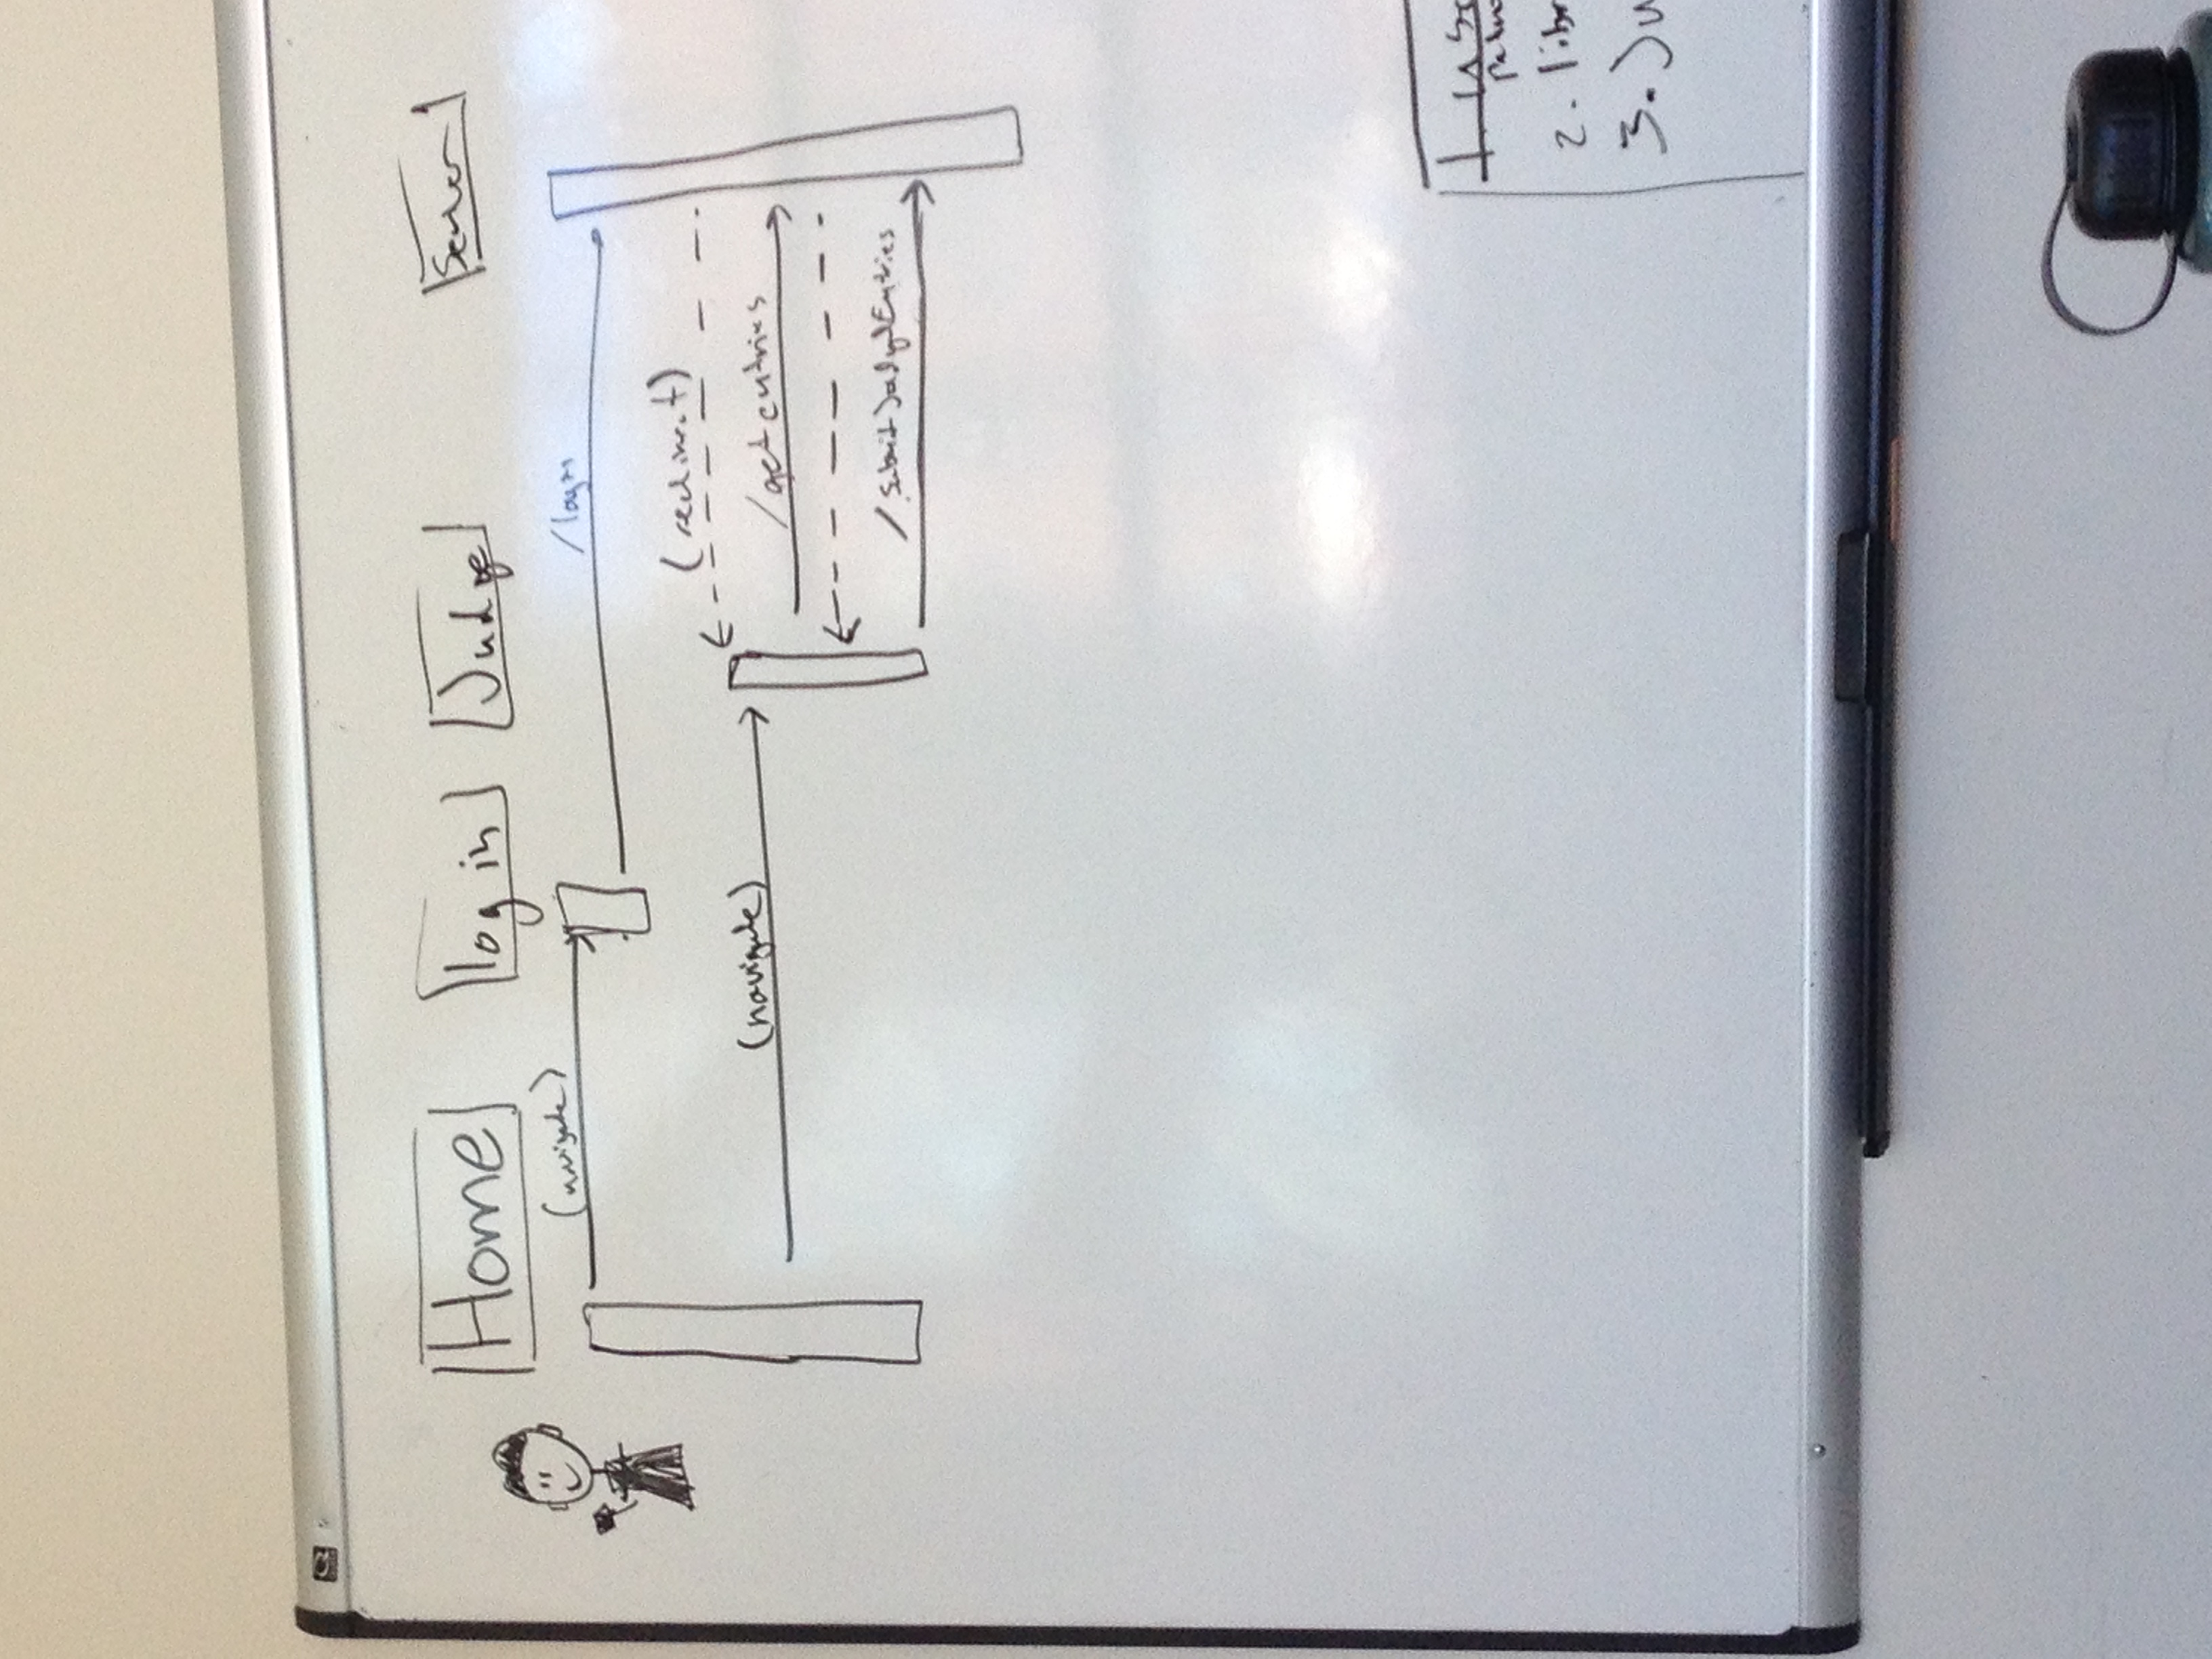 Home
log in
Judge
Server
(navigate)
/login
(redirect)
(navigate)
/get entries
/submitJudgedEntries
1 us
2. libr
3. Ju